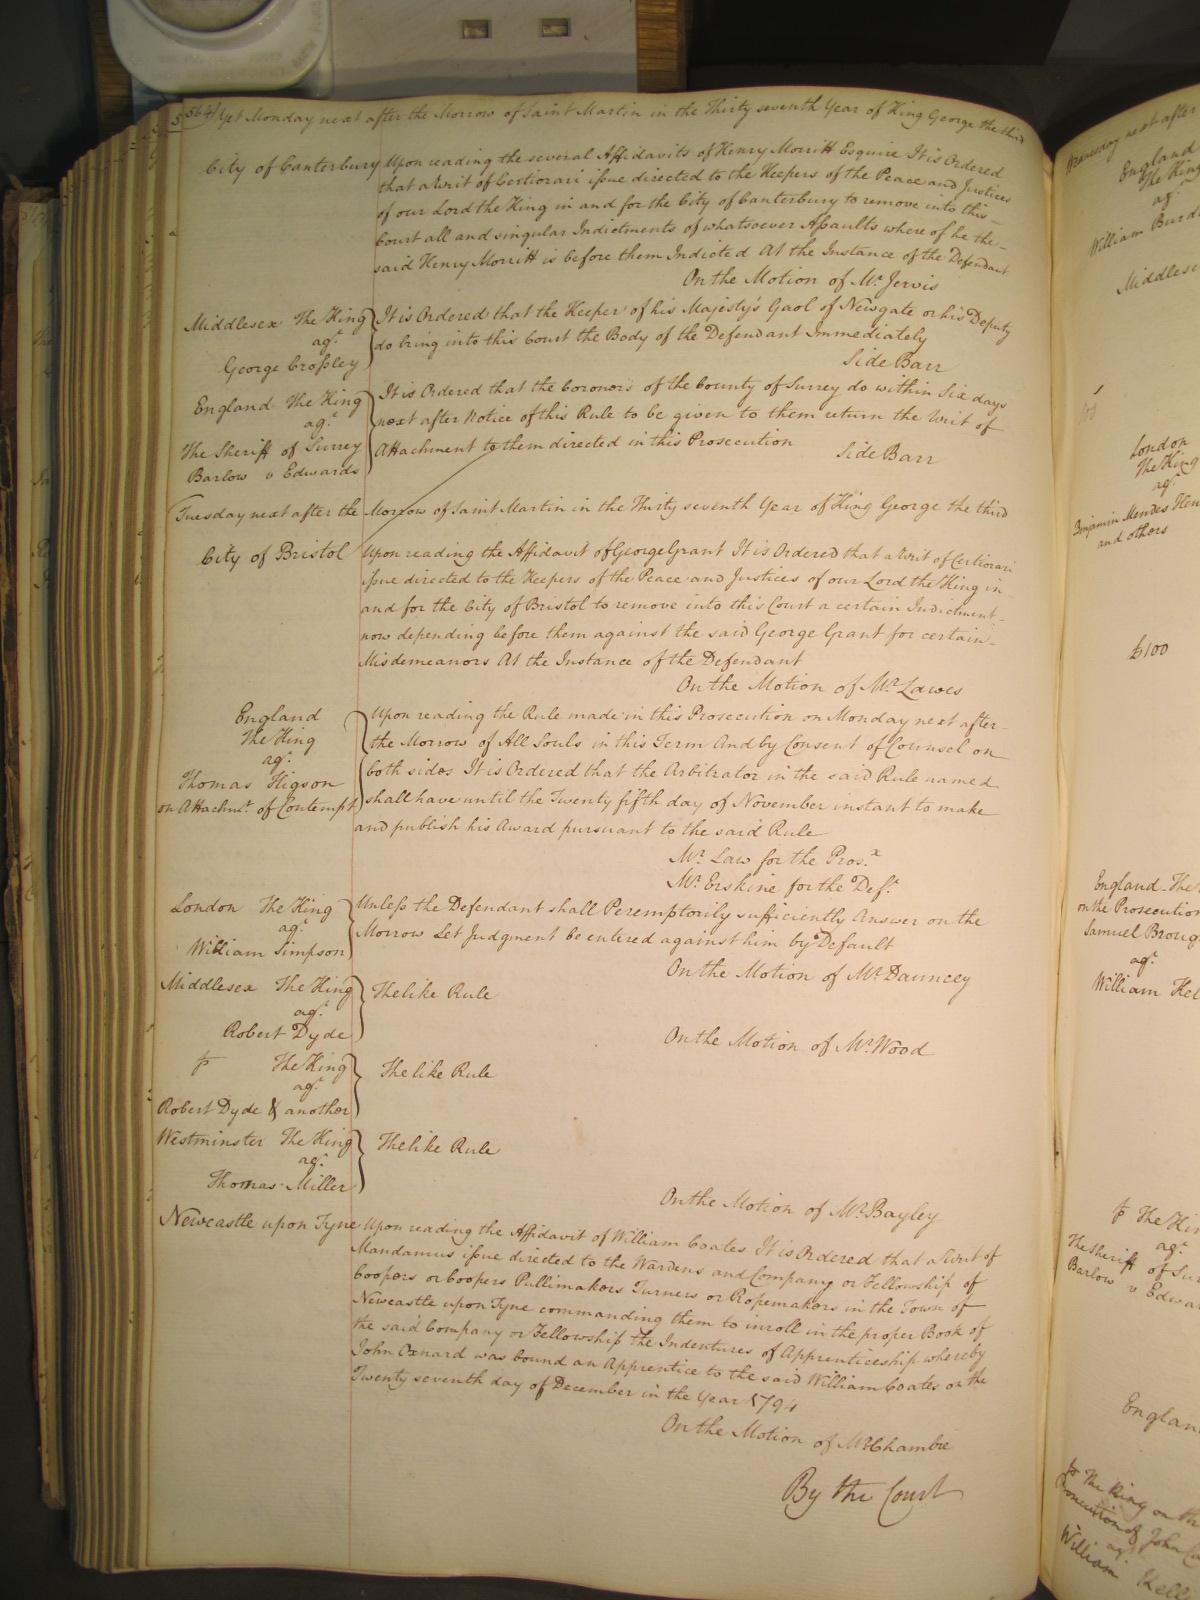 564) Yet Monday next after the Morrow of Saint Martin in the Thirty seventh Year of King George the third
City of Canterbury Upon reading the several Affidavits of Henry Morritt Esquire It is Ordered
that a Writ of Certiorari issue directed to the Keepers of the Peace and Justices
of our Lord the King in and for the City of Canterbury to remove into this
Court all and singular Indictments of whatsoever Assaults where of he the
said Henry Morritt is before them Indicted At the Instance of the Defendant
On the Motion of Mr. Jervis
Middlesex The King
agt.
George Crossley
It is Ordered that the Keeper of his Majesty's Gaol of Newgate or his Deputy
do bring into this Court the Body of the Defendant Immediately
Side Barr
England The King
agt.
The Sheriff of Surrey
Barlow v Edwards
It is Ordered that the Coroners of the County of Surrey do within Six days
next after Notice of this Rule to be given to them return the Writ of
Attachment to them directed in this Prosecution
Side Barr
Tuesday next after the Morrow of Saint Martin in the Thirty seventh Year of King George the third
City of Bristol Upon reading the Affidavit of George Grant It is Ordered that a Writ of Certiorari
issue directed to the Keepers of the Peace and Justices of our Lord the King in
and for the City of Bristol to remove into this Court a certain Indictment
now depending before them against the said George Grant for certain
Misdemeanors At the Instance of the Defendant
On the Motion of Mr. Lawes
England
The King
agt.
Thomas Higson
on Attachmt. of Contempt
Upon reading the Rule made in this Prosecution on Monday next after
the Morrow of All Souls in this Term And by Consent of Counsel on
both sides It is Ordered that the Arbitrator in the said Rule named
shall have until the Twenty fifth day of November instant to make
and publish his Award pursuant to the said Rule
Mr. Law for the Pros.x
Mr. Erskine for the Deft.
London The King
agt.
William Simpson
Unless the Defendant shall Peremptorily sufficiently Answer on the
Morrow Let Judgment be entered against him by Default
On the Motion of Mr. Dauncey
Middlesex The King
agt.
Robert Dyde
The like Rule
On the Motion of Mr. Wood
The King
agt.
Robert Dyde & another
The like Rule
Westminster The King
agt.
Thomas Miller
The like Rule
On the Motion of Mr. Bayley
Newcastle upon Tyne Upon reading the Affidavit of William Coates It is Ordered that a Writ of
Mandamus issue directed to the Wardens and Company or Fellowship of
Coopers or Coopers Pullimakers Turners or Ropemakers in the Town of
Newcastle upon Tyne commanding them to inroll in the proper Book of
the said Company or Fellowship the Indentures of Apprenticeship whereby
John Oxnard was bound an Apprentice to the said William Coates on the
Twenty seventh day of December in the Year 1791
On the Motion of Mr. Chambre
By the Court
next after
England
The King
agt.
William
London
The King
agt.
Benjamin Mendes
and others
£100
England The
on the Prosecution
Samuel
agt.
William
The
agt.
The Sheriff of
Barlow v
The King on
Prosecution of John
agt.
William